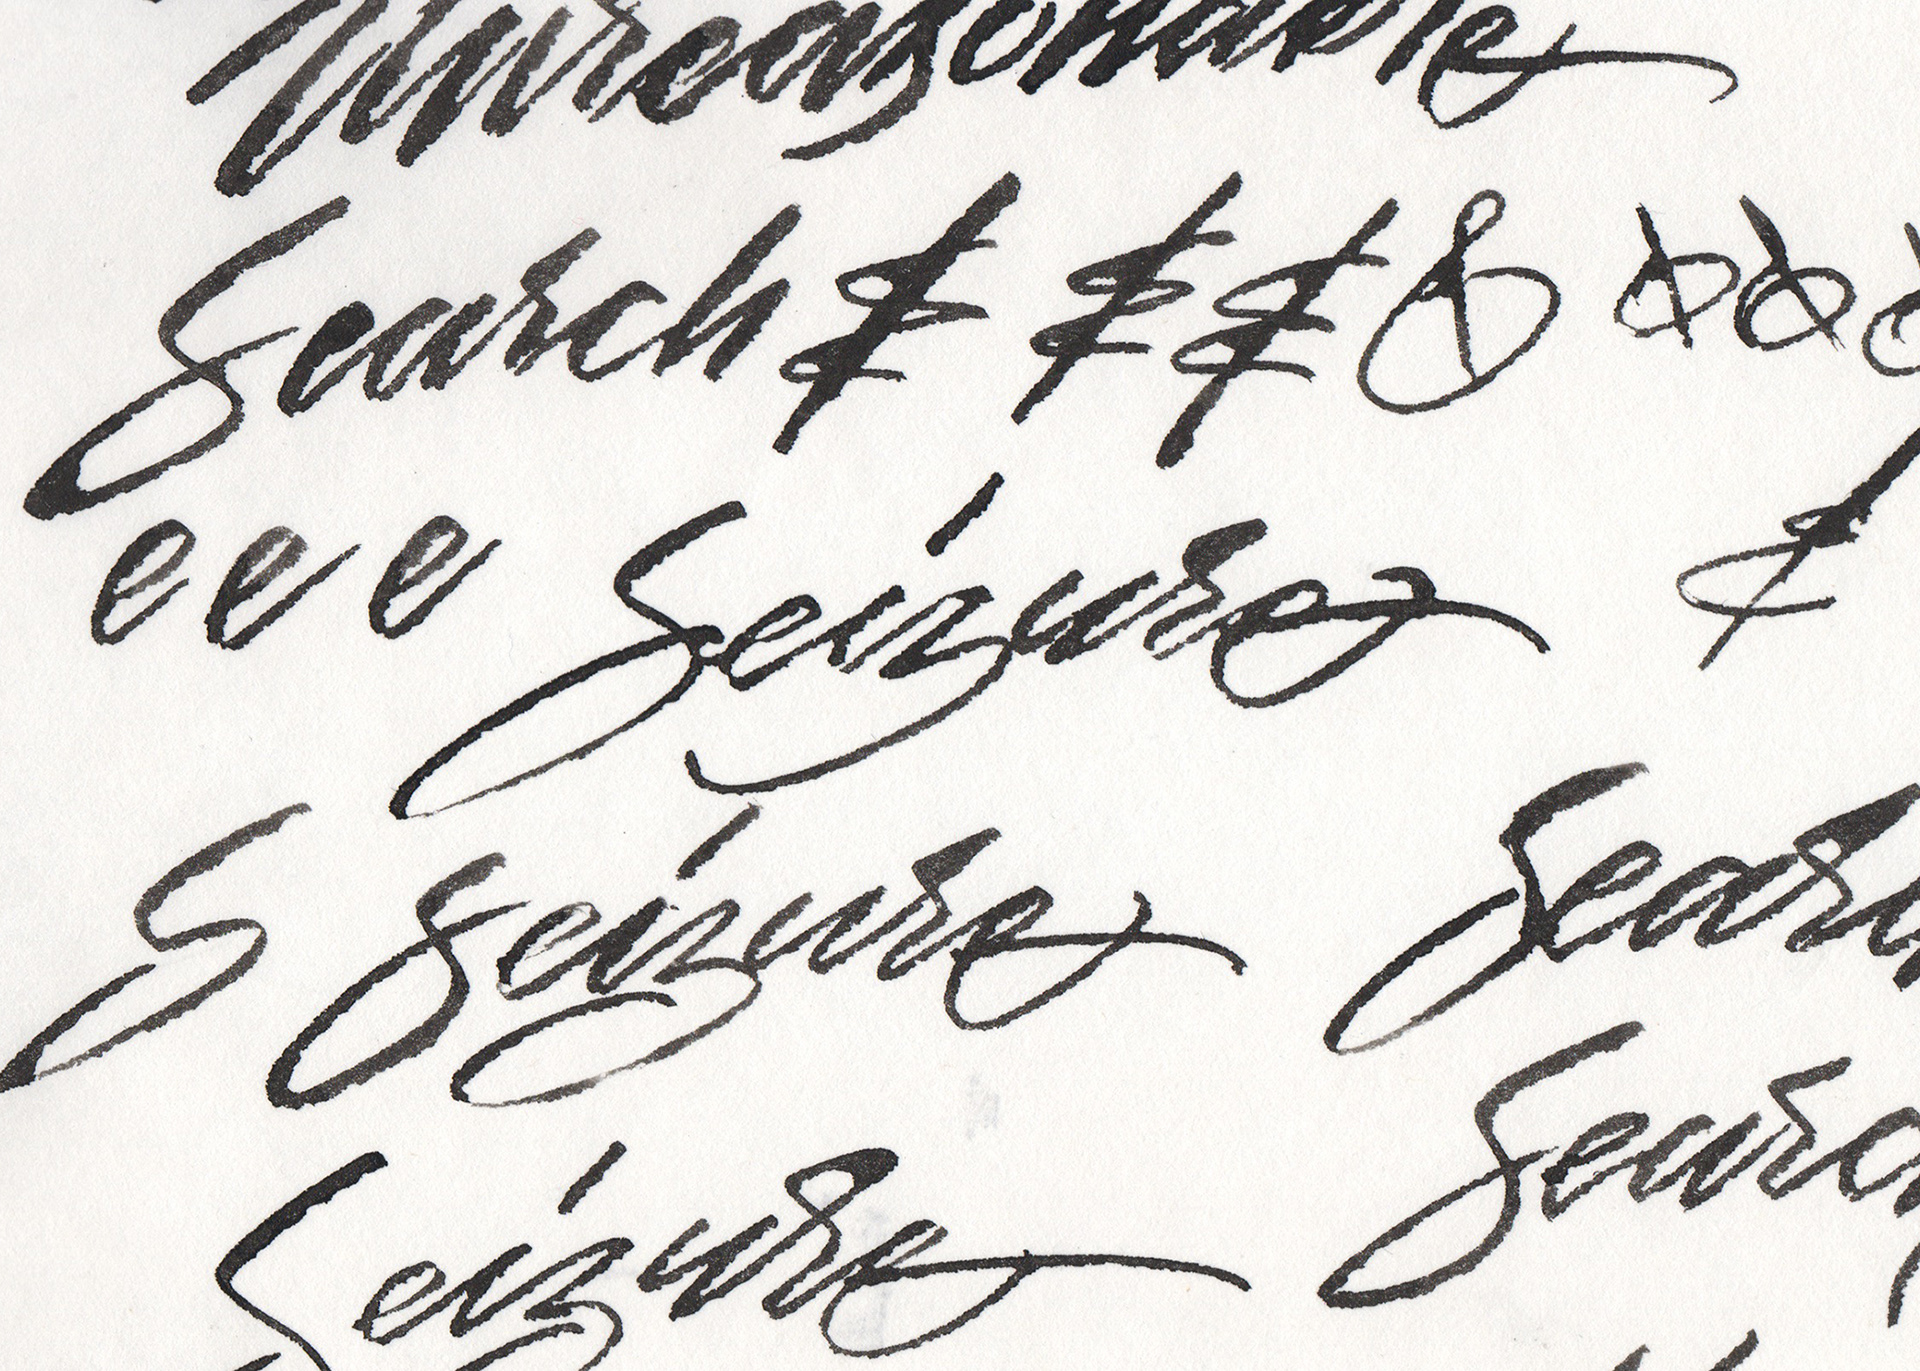 Unreasonable
Search & & & & & &
e e e Seizure &
S Seizure Search
Search
Seizure